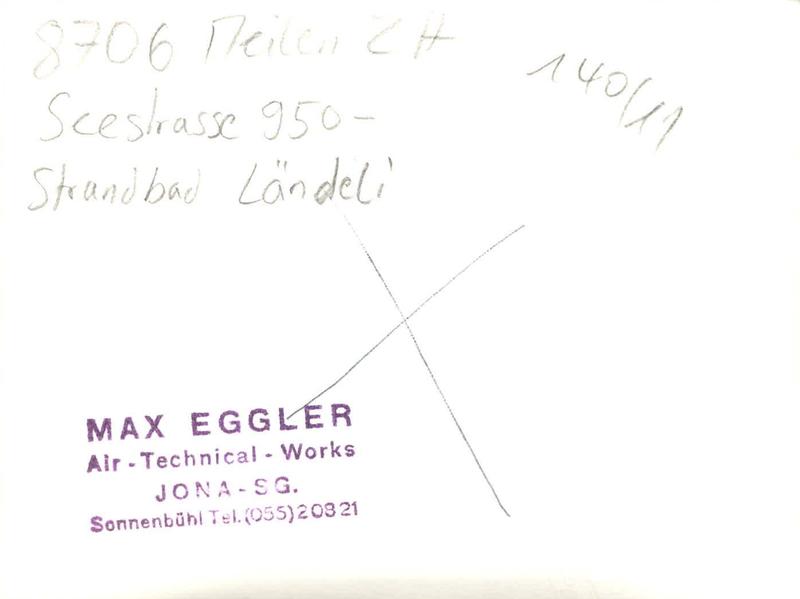 8706 Meilen ZH
140/11
Seestrasse 950-
Strandbad Ländeli
MAX EGGLER
Air-Technical-Works
JONA-SG.
Sonnenbühl Tel.(055)20821